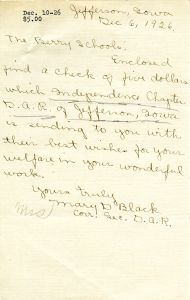 Dec. 10-26
$5.00
Jefferson, Iowa
Dec 6, 1926.
The Berry Schools.
Enclosed
find a check of five dollars
which Independence Chapter
D.A.R. of Jefferson, Iowa
is sending to you with
their best wishes for your
welfare in your wonderful
work.
Yours truly
(Mrs) Mary D Black
Cor. Sec. D.A.R.